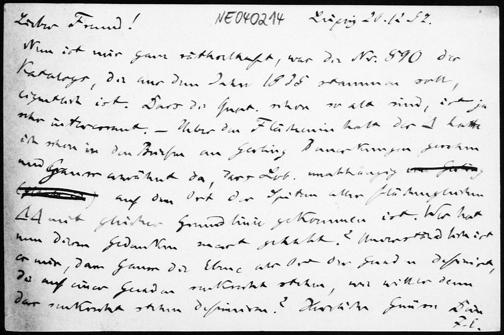 Lieber Freund! NE040214 Leipzig 20.12.52.
Nun ist mir ganz rätselhaft, was die Nr. 890 des
Katalogs, die aus dem Jahre 1835 stammen soll,
eigentlich ist. Dass die schon so alt sind, ist ja
sehr interessant. — Ueber den Flächeninhalt der Δ hatte
ich schon in den Briefen an Gerling Bemerkungen gesehen
und Gauss erwähnt da, dass Lob. unabhängig
auf den Ort der Spitzen aller flächengleichen
ΔΔ mit gleicher Grundlinie gekommen ist. Wer hat
nun diesen Gedanken zuerst gehabt? Unverständlich ist
es mir, dass Gauss die Ebene als Ort der Geraden definiert,
die auf einer Geraden senkrecht stehen, wie will er denn
das senkrecht stehen definieren? Herzliche Grüsse Dein
F. E.